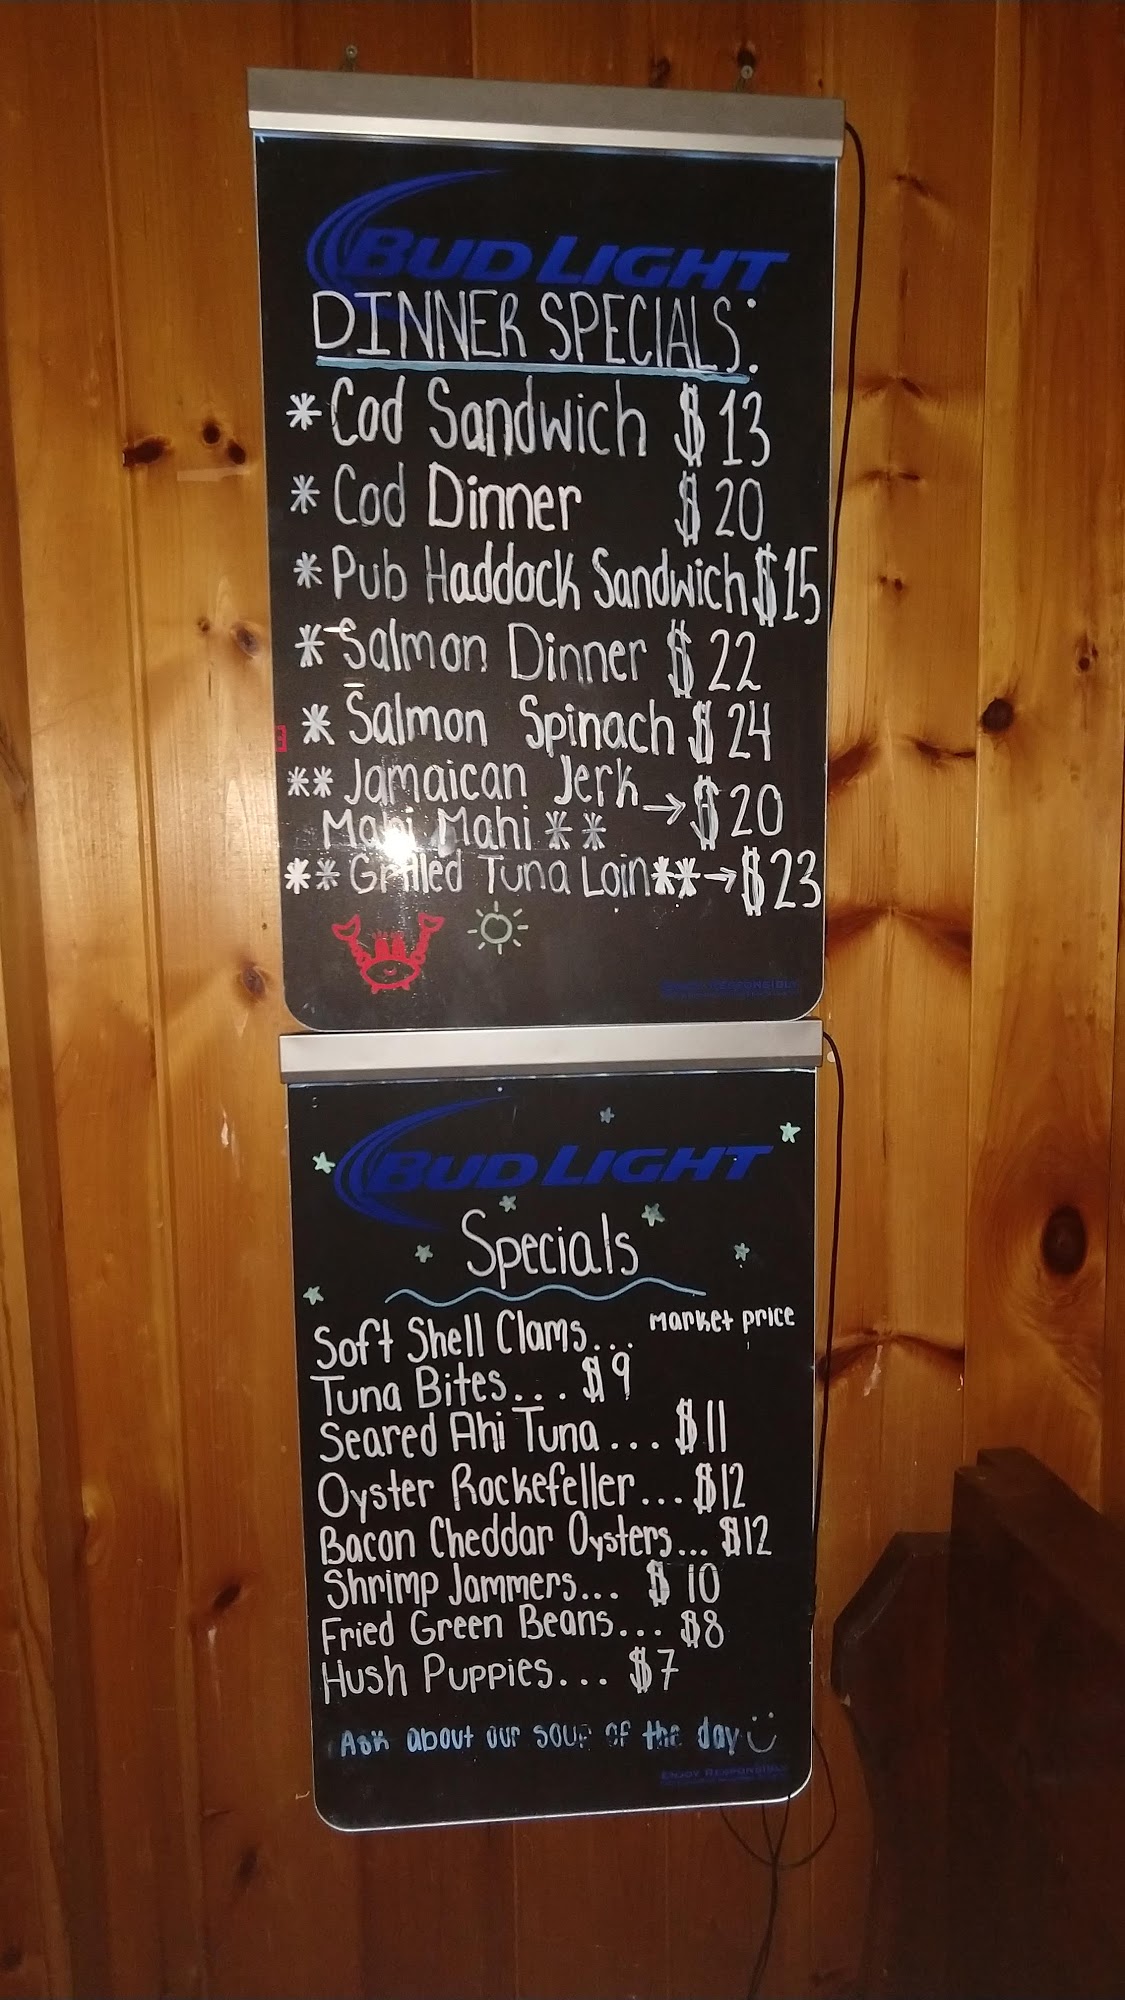 BUD LIGHT
DINNER SPECIALS:
* Cod Sandwich $13
* Cod Dinner $20
* Pub Haddock Sandwich $15
* Salmon Dinner $22
* Salmon Spinach $24
** Jamaican Jerk → $20
Mahi Mahi **
** Grilled Tuna Loin ** → $23
BUD LIGHT
Specials
Soft Shell Clams... Market price
Tuna Bites... $9
Seared Ahi Tuna... $11
Oyster Rockefeller... $12
Bacon Cheddar Oysters... $12
Shrimp Jammers... $10
Fried Green Beans... $8
Hush Puppies... $7
Ask about our soup of the day
ENJOY RESPONSIBLY